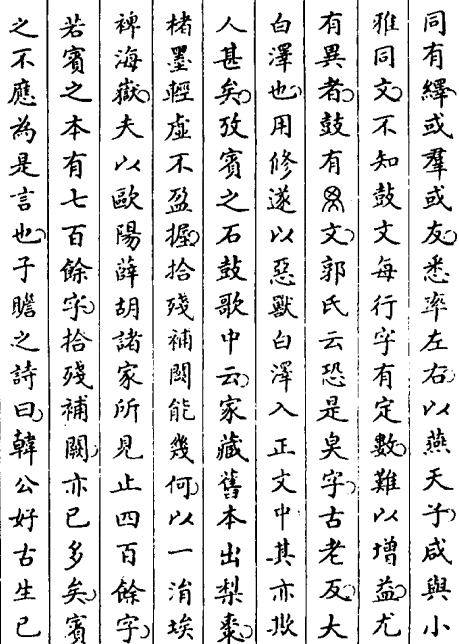 同有繹或羣或友悉率左右以燕天子咸與小
雅同文不知鼓文每行字有定數難以增益尤
有異者鼓有文郭氏云恐是臭字古老反大
白澤也用修遂以惡獸白澤入正文中其亦欺
人甚矣攷賓之石鼓歌中云家藏舊本出梨棗
楮墨輕虛不盈握拾殘補闕能幾何以一涓埃
裨海嶽夫以歐陽薛胡諸家所見止四百餘字
若賓之本有七百餘字拾殘補闕亦已多矣賓
之不應為是言也子瞻之詩曰韓公好古生已